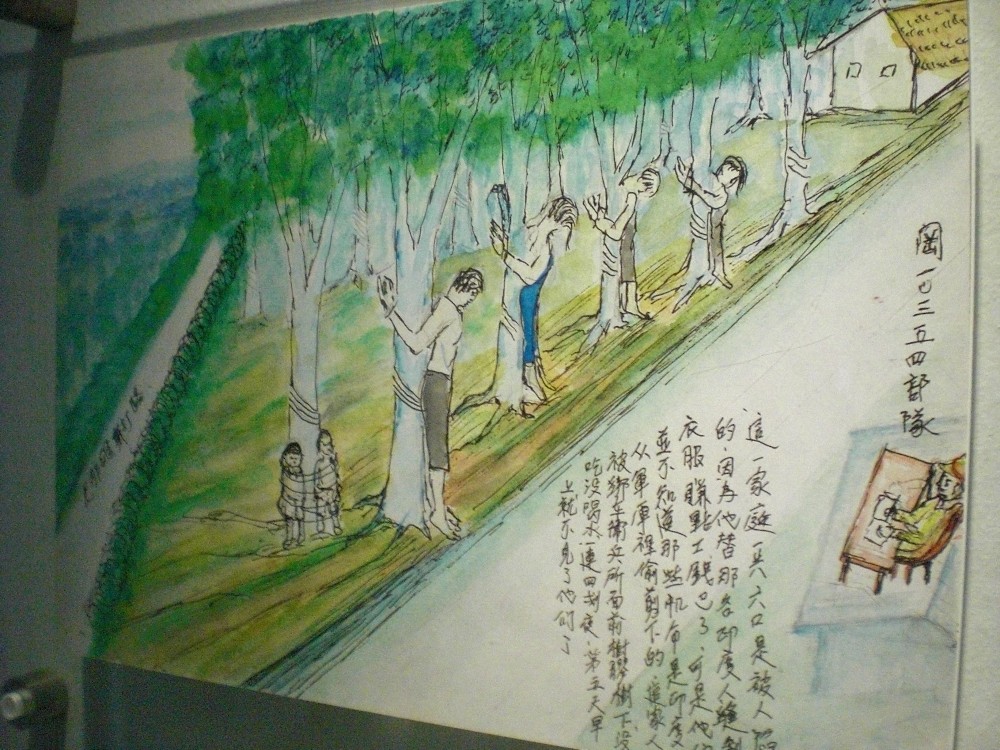 岡一〇三五四部隊
這一家庭一共六口是被人
的,因為他替那各印度人縫製
衣服賺點工錢巴了,可是他
並不知道那些帆布是印度
从軍庫裡偷剪下的,這家人
被綁在補兵所面前樹膠樹下没
吃没喝水一連四划夜,第五天早
上就不見了他們了